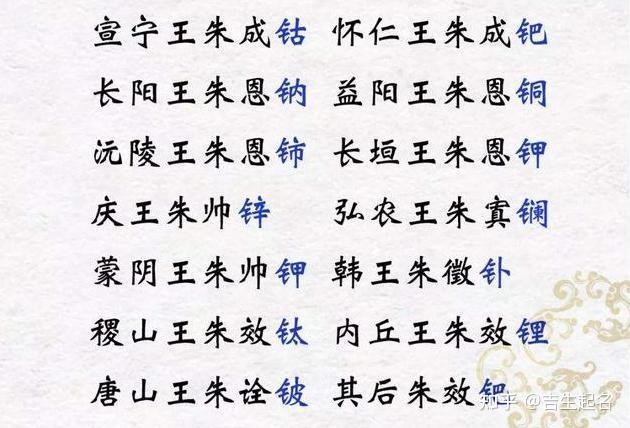 宣宁王朱成钴 怀仁王朱成钯
长阳王朱恩钠 益阳王朱恩铜
沅陵王朱恩铈 长垣王朱恩钾
庆王朱帅锌 弘农王朱寘镧
蒙阴王朱帅钾 韩王朱徵钋
稷山王朱效钛 内丘王朱效锂
唐山王朱诠铍 其后朱效钯
知乎 @吉生起名